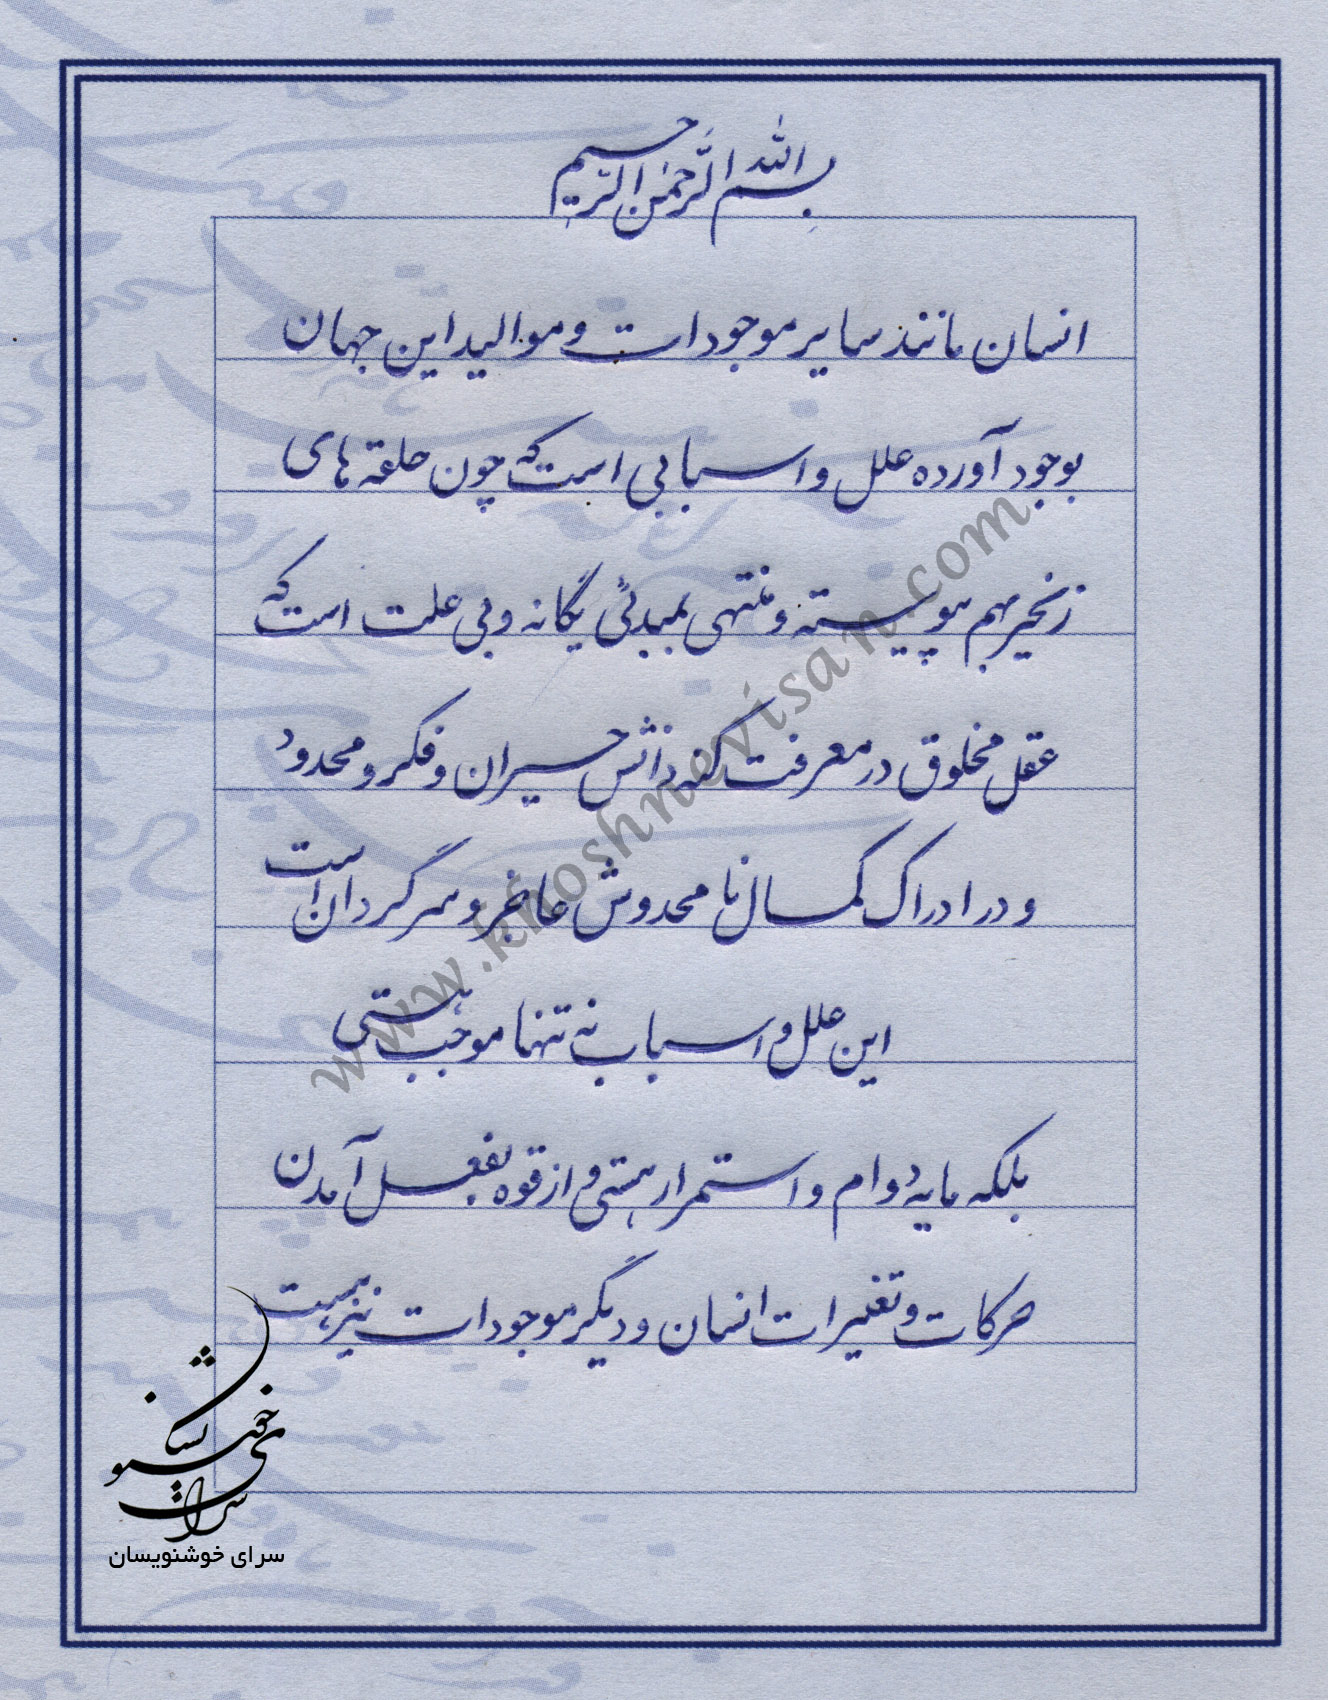 بسم الله الرحمن الرحیم
انسان مانند سایر موجودات و موالید این جهان
بوجود آورده علل و اسبابی است که چون حلقه های
زنجیر بهم پیوسته و منتهی بمبدئی یگانه و بی علت است که
عقل مخلوق در معرفت کنه ذاتش حیران و فکر و محدود
و در ادراک کمال نا محدوش عاجز و سرگردان است
این علل و اسباب نه تنها موجب هستی
بلکه مایه دوام و استمرار هستی و از قوه بفعل آمدن
حرکات و تغییرات انسان و دیگر موجودات نیز هست
www.khoshnevisan.com
سرای خوشنویسان